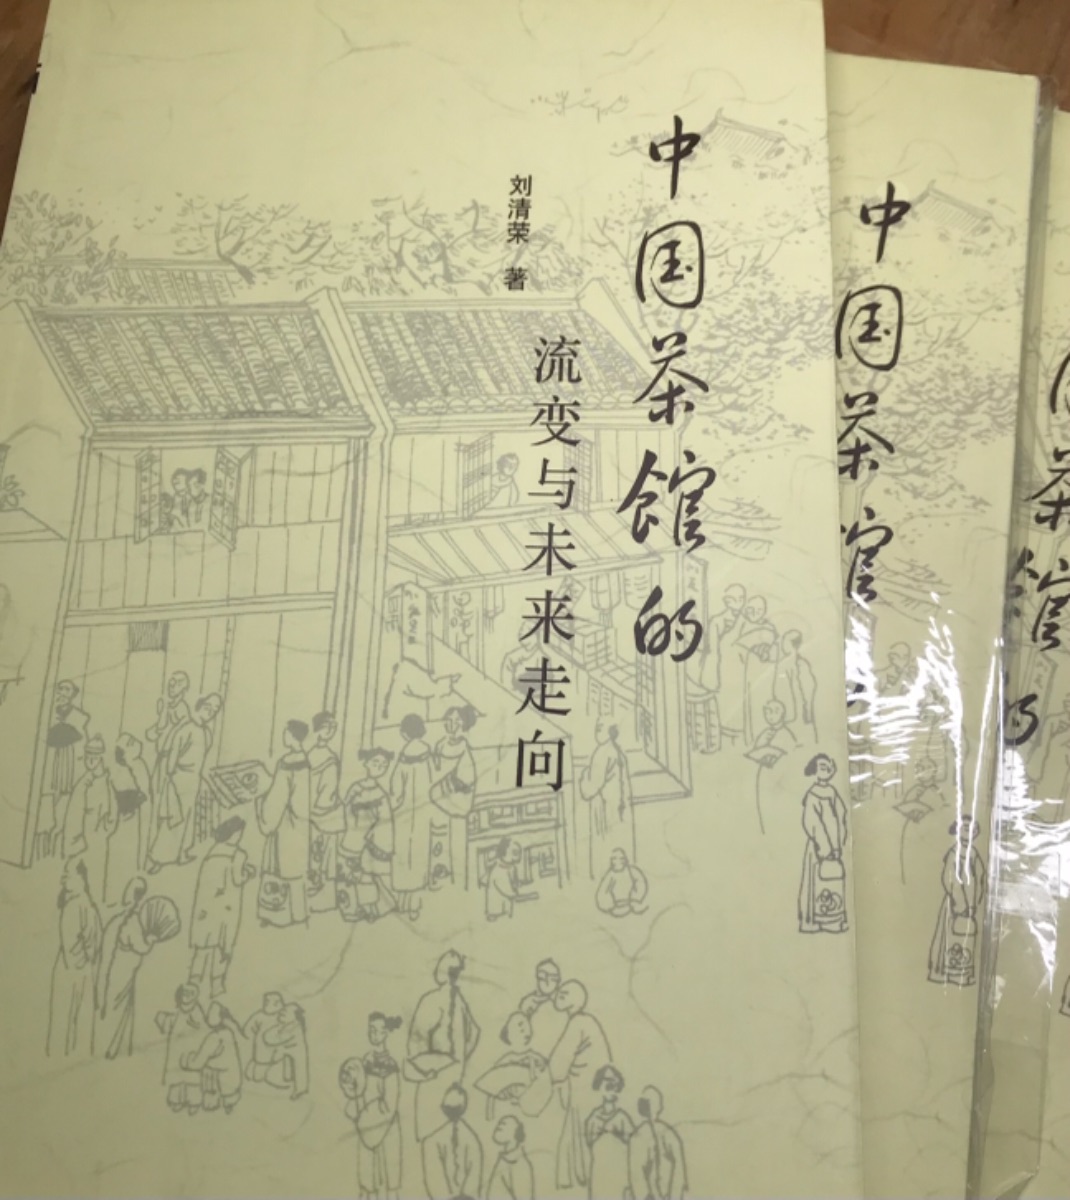 中国茶館的
流变与未来走向
刘清荣 著
中国茶館
茶館的